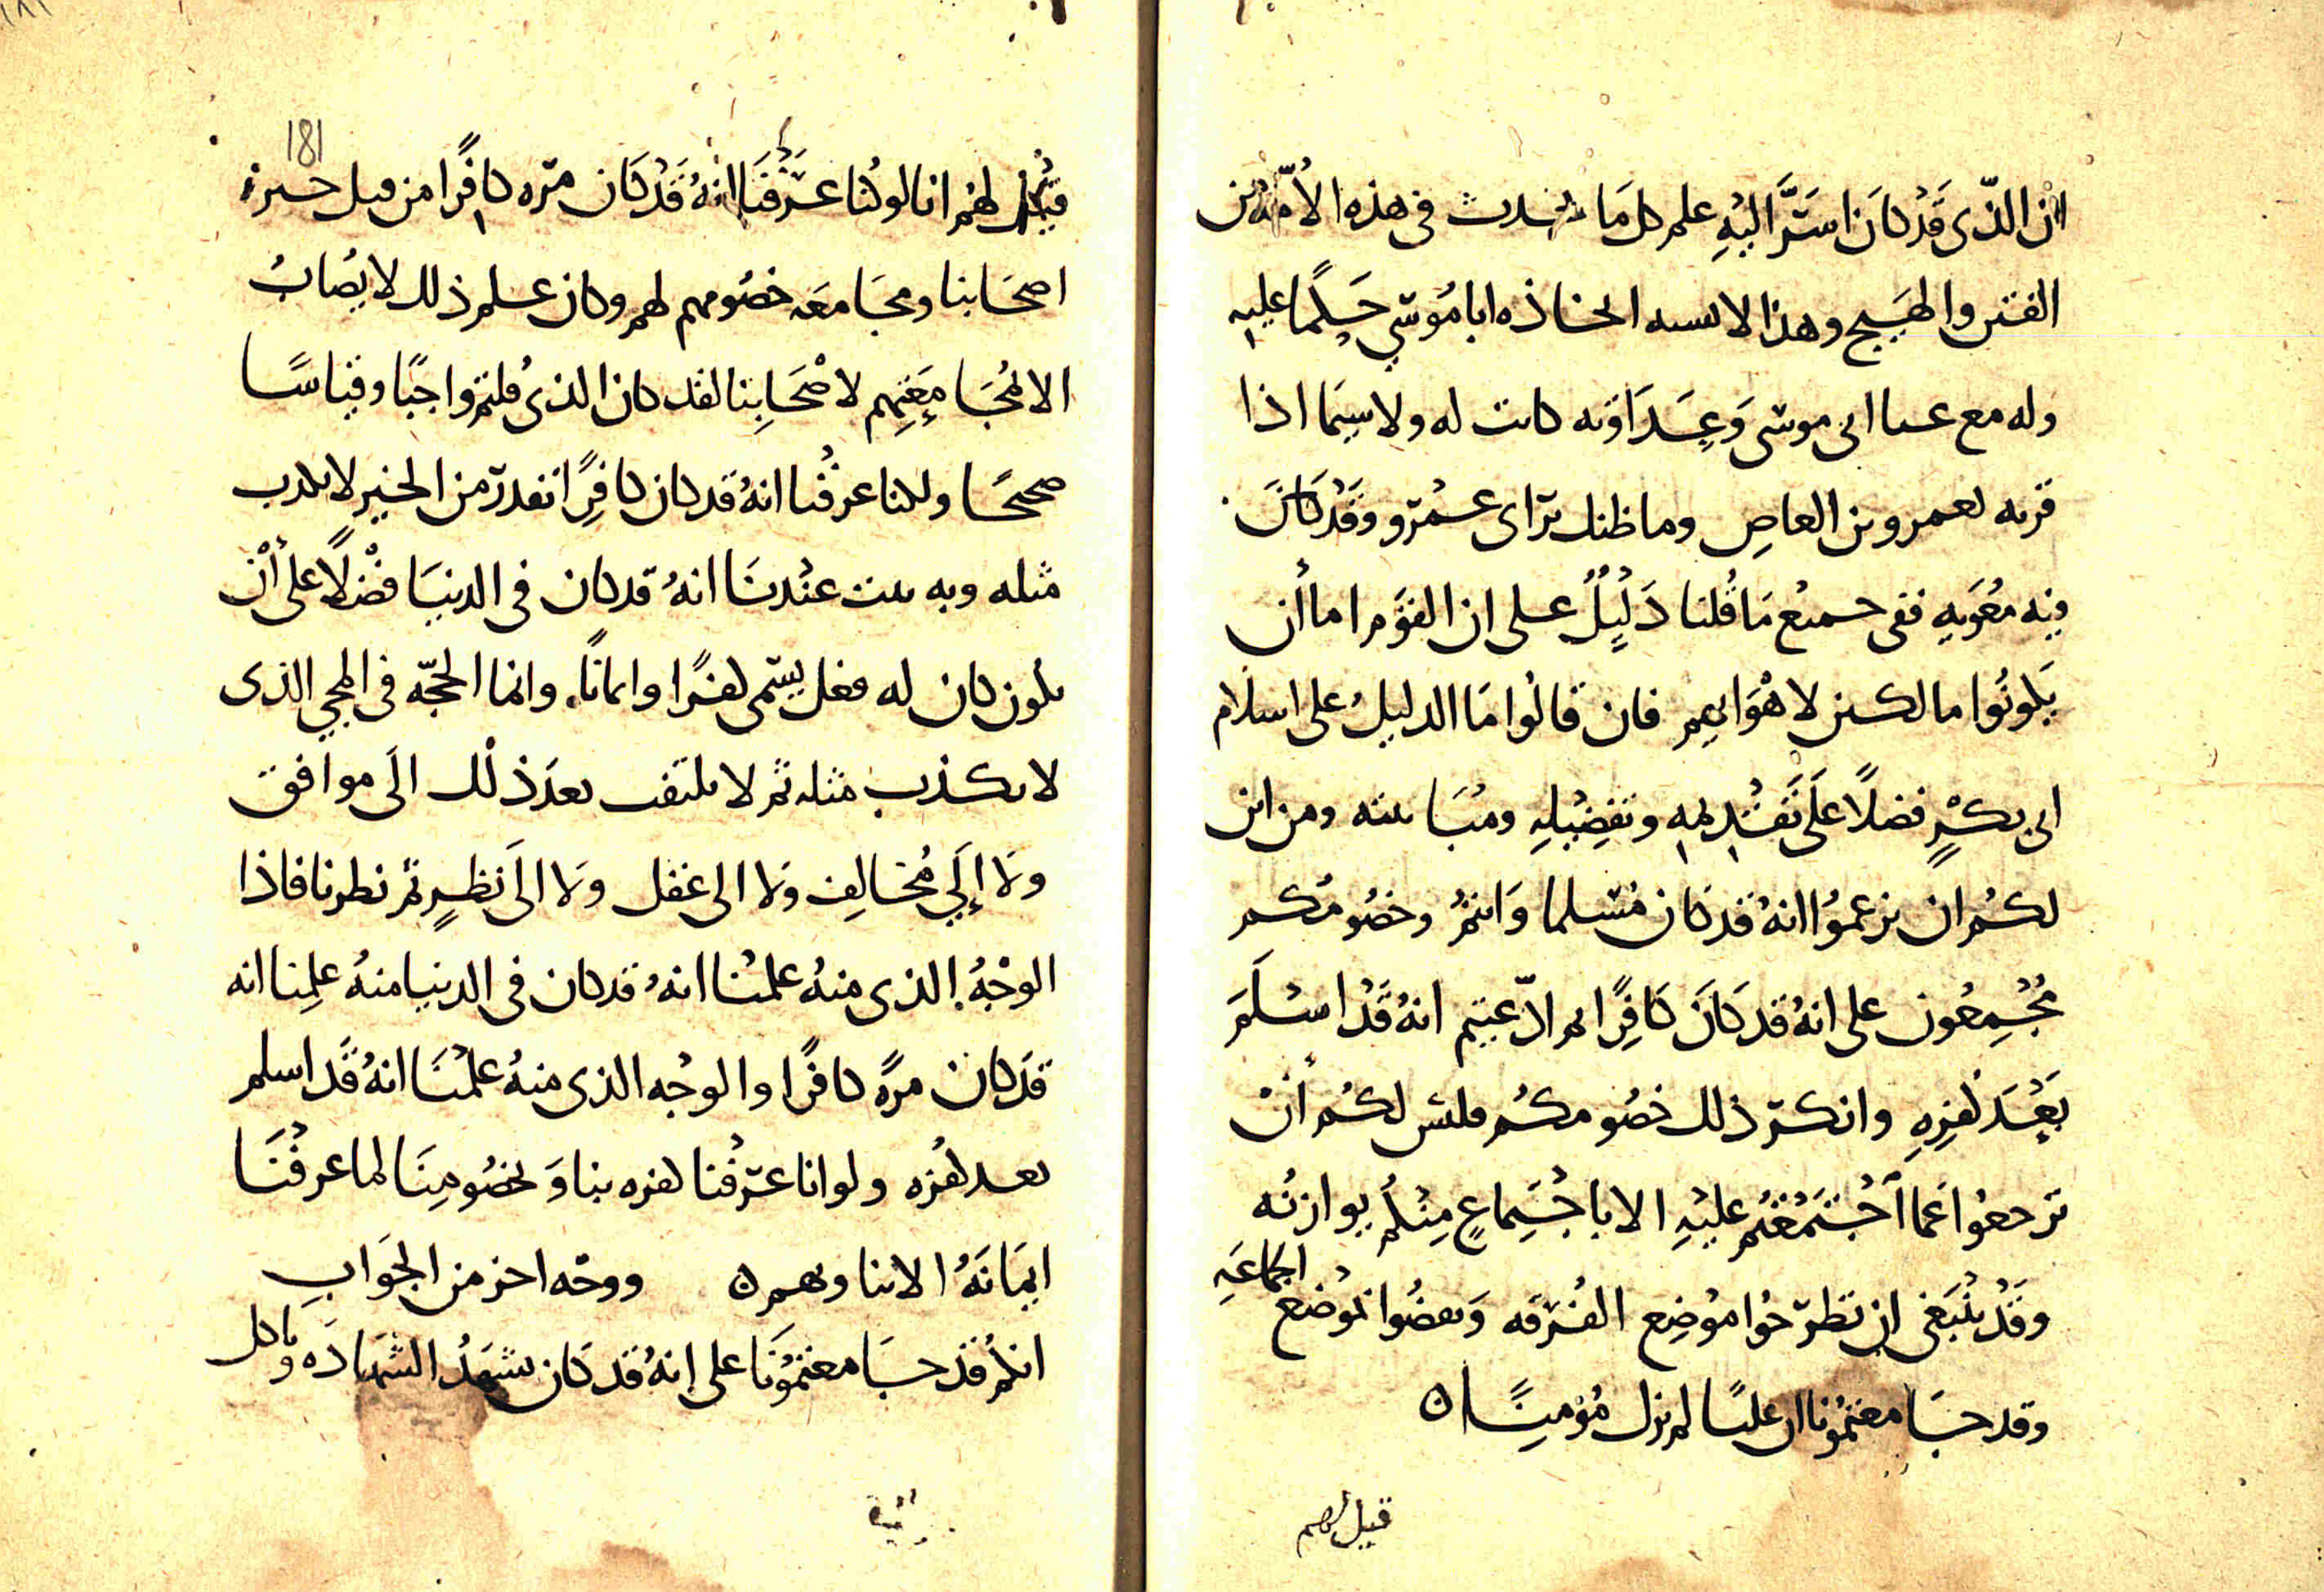 ان الذي قد كان استر اليه علم كل ما يحدث في هذه الامة من
الفتن والهيج وهذا لا يشبه اتخاذه ابا موسى حكما عليه
وله مع عبا ابي موسى وعداوته كانت له ولا سيما اذا
قرنه بعمرو بن العاص وما ظنك براى عمرو وقد كان
فيه معويه ففى جميع ما قلنا دليل على ان القوم اما أن
يكونوا مالكين لاهوايهم فان قالوا ما الدليل على اسلام
ابي بكر فضلا على تقديمه وتفضيله ومباينته ومن اين
لكم ان تزعموا انه قد كان مسلما وانتم وخصومكم
مجمعون على انه قد كان كافرا ثم ادعيتم انه قد اسلم
بعد كفره وانكر ذلك خصومكم فليس لكم أن
ترجعوا عما اجتمعتم عليه الا باجتماع مثله يوازنه
وقد ينبغي ان تطرحوا موضع الفرقه وتقضوا بموضع الجماعه
وقد جامعتمونا ان عليا لم يزل مؤمنا ن
قيل لهم
181
قيل لهم انا لو كنا عرفنا انه قد كان مره كافرا من قبل خبر
اصحابنا ومجامعه خصومهم لهم وكان علم ذلك لا يصاب
الا بمجامعتهم لاصحابنا لقد كان الذي قلتم واجبا وقياسا
صحيحا ولكنا عرفنا انه قد كان كافرا نفدر من الخبر لا يكذب
مثله وبه يثبت عندنا انه قد كان في الدنيا فضلا على أن
يكون كان له فعل يسمى كفرا وايمانا. وانما الحجه في المجي الذي
لا يكذب مثله ثم لا يلتفت بعد ذلك الى موافق
ولا إلى مخالف ولا الى عقل ولا الى نظير ثم نظرنا فاذا
الوجه الذي منه علمنا انه قد كان في الدنيا منه علمنا انه
قد كان مرة كافرا والوجه الذي منه علمنا انه قد اسلم
بعد كفره ولو انا عرفنا كفره بنا وبخصومنا لما عرفنا
ايمانه الا بنا وبهم ن ووجه اخر من الجواب
انكم قد جامعتمونا على انه قد كان يشهد الشهاده وياكل